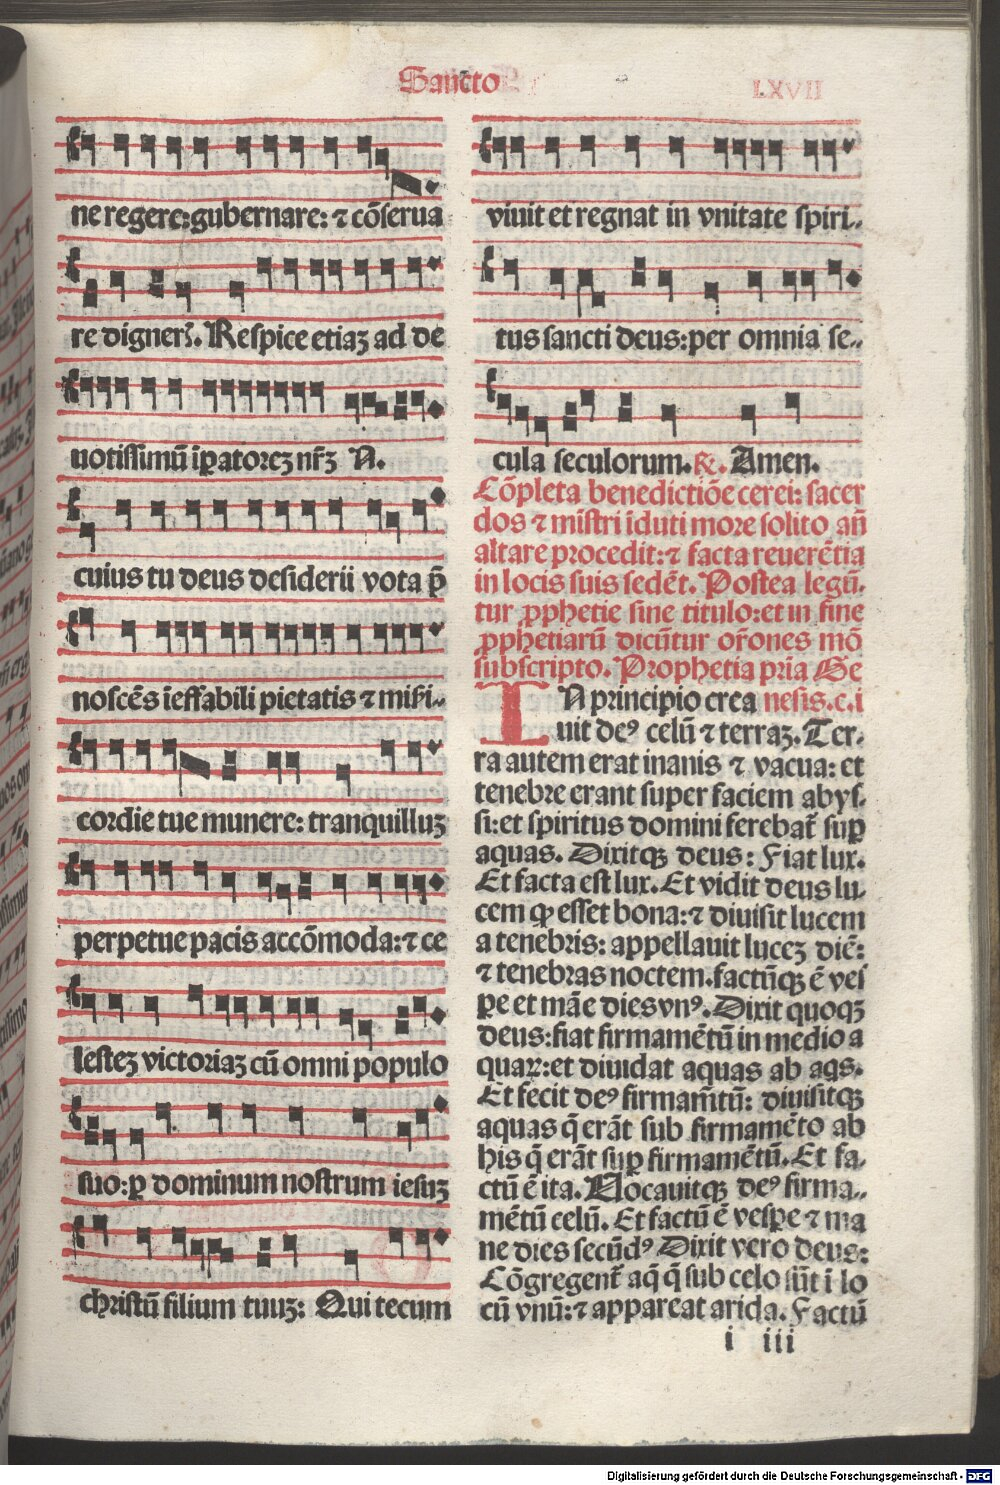 Sancto
LXVII
ne regere: gubernare: ⁊ cõserua
re digneris. Respice etiaʒ ad de
uotissimũ ip̄atoreʒ nr̃ʒ N.
cuius tu deus desiderii vota p̄
noscẽs ieffabili pietatis ⁊ mise..
cordie tue munere: tranquilluʒ
perpetue pacis accõmoda: ⁊ ce
lesteʒ victoriaʒ cũ omni populo
suo: ꝑ dominum nostrum iesuʒ
christũ filium tuuʒ: Qui tecum
viuit et regnat in vnitate spiri..
tus sancti deus: per omnia se..
cula seculorum. ℟. Amen.
Cõpleta benedictiõe cerei: sacer
dos ⁊ mĩstri ĩduti more solito añ
altare procedit: ⁊ facta reuerẽtia
in locis suis sedẽt. Postea legũ-
tur ꝓphetie sine titulo: et in fine
ꝓphetiarũ dicũtur or̃ones mõ
subscripto. Prophetia prĩa Ge
IN principio crea nesis. c. i
uit deꝰ celũ ⁊ terraʒ. Ter-
ra autem erat inanis ⁊ vacua: et
tenebre erant super faciem abys-
si: et spiritus domini ferebat̃ suꝑ
aquas. Dixitqʒ deus: Fiat lux.
Et facta est lux. Et vidit deus lu-
cem ꝙ esset bona: ⁊ diuisit lucem
a tenebris: appellauit luceʒ diẽ:
⁊ tenebras noctem. factũqʒ ẽ ves
ꝑe et mãe dies vnꝰ. Dixit quoqʒ
deus: fiat firmamẽtũ in medio a
quaꝝ: et diuidat aquas ab aqs.
Et fecit deꝰ firmam̃tũ: diuisitqʒ
aquas q̃ erãt sub firmamẽto ab
his q̃ erãt suꝑ firmamẽtũ. Et fa-
ctũ ẽ ita. Vocauitqʒ deꝰ firma..
mẽtũ celũ. Et factũ ẽ vesꝑe ⁊ ma
ne dies secũdꝰ Dixit vero deus:
Cõgregent̃ aq̃ q̃ sub celo sũt i lo
cũ vnũ: ⁊ appareat arida. Factũ
i iii
Digitalisierung gefördert durch die Deutsche Forschungsgemeinschaft - DFG